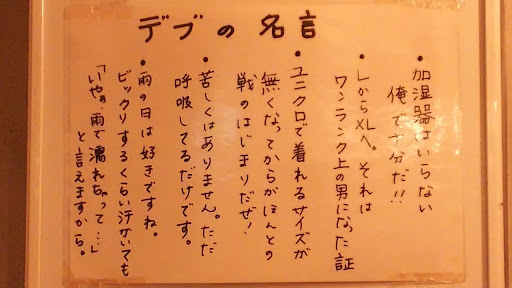 デブの名言
・加湿器はいらない
俺で十分だ!!
・LからXLへ。それは
ワンランク上の男になった証
・ユニクロで着れるサイズが
無くなってからがほんとの
戦のはじまりだぜ!
・苦しくはありません。ただ
呼吸してるだけです。
・雨の日は好きですね。
ビックリするくらい汗かいても
「いやぁ、雨で濡れちゃって…」
と言えますから。